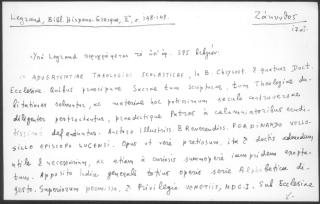 Legrand, Bibl. Hispano-Grecque, II, σ. 148-149.
Ζάκυνθος
Ὑπὸ Legrand περιγράφεται τὸ ὑπ' ἀρ. 595 βιβλίον:
ADVERTENTIAE THEOLOGIAE SCHOLASTICAE, in B. Chrysost. & quatuor Doct.
Ecclesiae. Quibus praecipuae Sacrae tum Scripturae, tum Theologiae
calvuntur, ac materiae hoc potissimum seculo controversae
diligenter pertractantur, praedictique Patres à calumniatoribus erudi-
tissime defenduntur. Auctore Illustris & Reverendiss. FERDINANDO VELLO-
SILLO EPISCOPO LUCENSI. Opus ut verè pretiosum, ita & doctis admodum
utile & necessarium, ac etiam à curiosis quampridem exopta-
tum. Apposito Indice generali totius operis serie Alphabetica di-
gesto. Superiorum permissu, & Privilegio VENETIIS, MDCI. Sub Ecclesiae